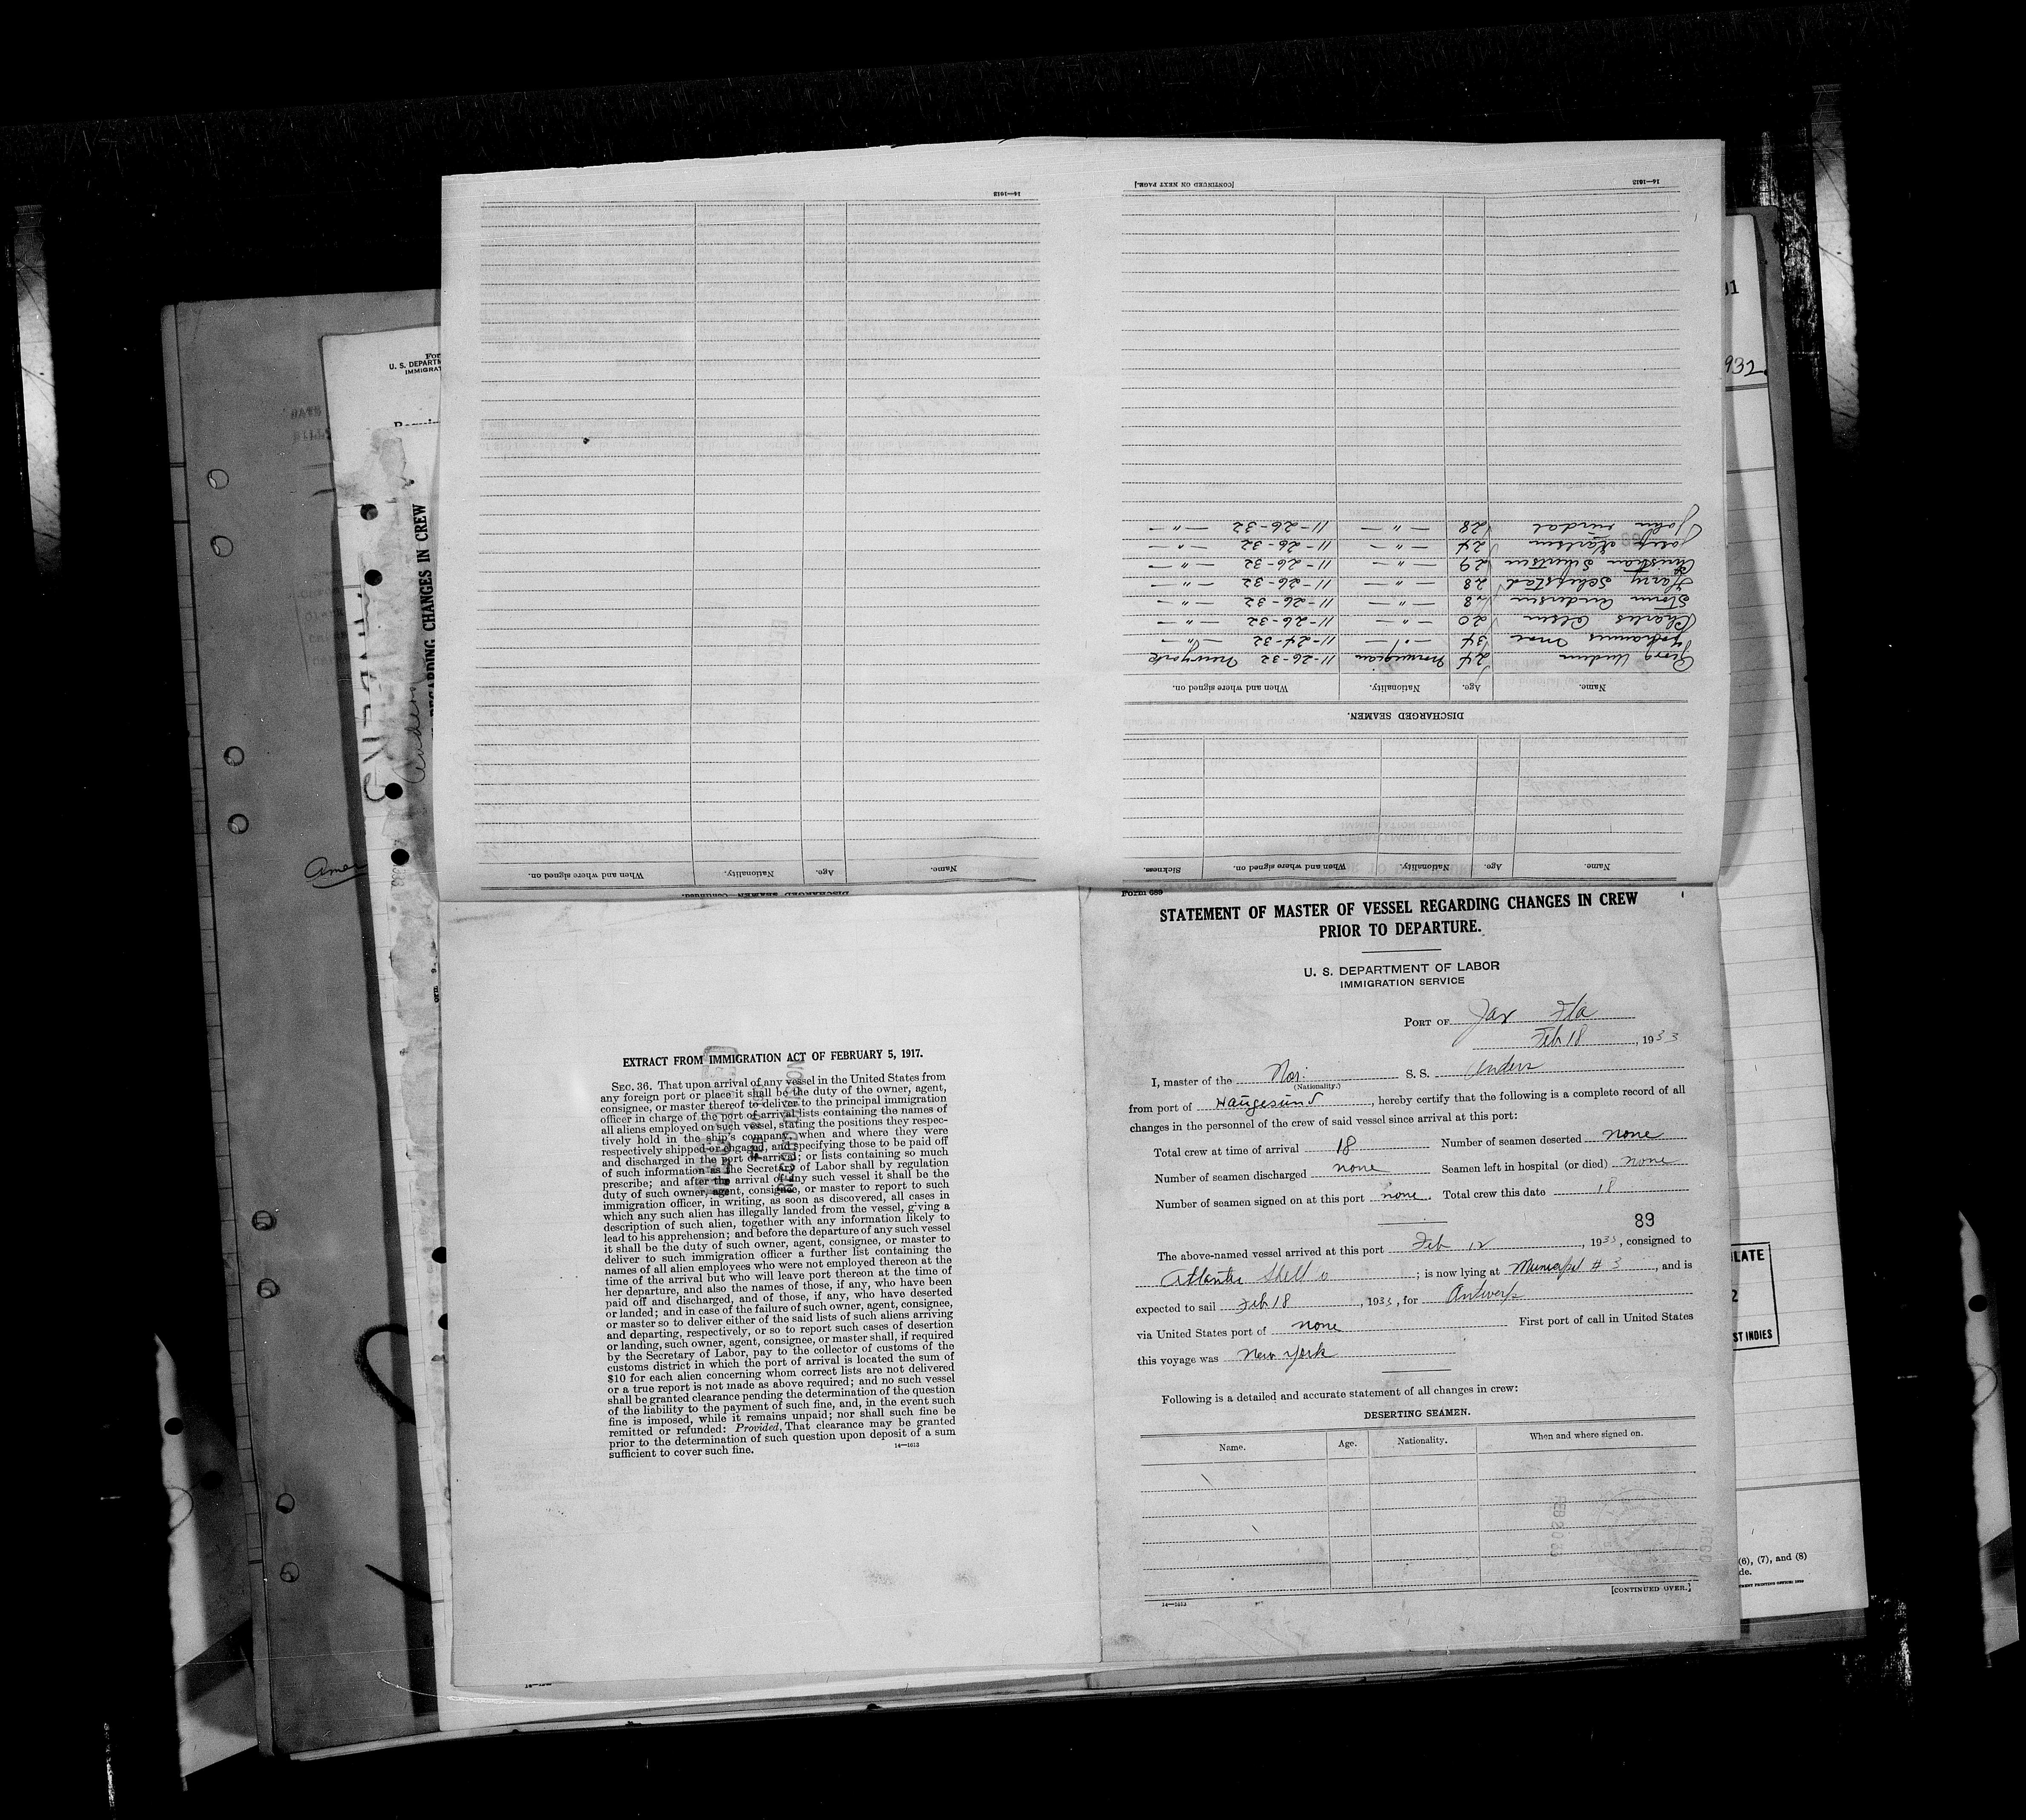 Form 689
STATEMENT OF MASTER OF VESSEL REGARDING CHANGES IN CREW
PRIOR TO DEPARTURE.
U. S. DEPARTMENT OF LABOR
IMMIGRATION SERVICE
PORT OF Jax Fla
Feb 18, 1933
I, master of the Nor. S. S. Anders
(Nationality.)
from port of Haugesund, hereby certify that the following is a complete record of all
changes in the personnel of the crew of said vessel since arrival at this port:
Total crew at time of arrival 18 Number of seamen deserted none
Number of seamen discharged none Seamen left in hospital (or died) none
Number of seamen signed on at this port none. Total crew this date 18
89
The above-named vessel arrived at this port Feb 12, 1933, consigned to
Atlantic; is now lying at Municipal # 3, and is
expected to sail Feb 18, 1933, for Antwerp
via United States port of none First port of call in United States
this voyage was New York
Following is a detailed and accurate statement of all changes in crew:
DESERTING SEAMEN.
Name. Age. Nationality. When and where signed on.
FEB 20 33
[CONTINUED OVER.]
14—1613
EXTRACT FROM IMMIGRATION ACT OF FEBRUARY 5, 1917.
SEC. 36. That upon arrival of any vessel in the United States from
any foreign port or place it shall be the duty of the owner, agent,
consignee, or master thereof to deliver to the principal immigration
officer in charge of the port of arrival lists containing the names of
all aliens employed on such vessel, stating the positions they respec-
tively hold in the ship's company, when and where they were
respectively shipped or engaged, and specifying those to be paid off
and discharged in the port of arrival; or lists containing so much
of such information as the Secretary of Labor shall by regulation
prescribe; and after the arrival of any such vessel it shall be the
duty of such owner, agent, consignee, or master to report to such
immigration officer, in writing, as soon as discovered, all cases in
which any such alien has illegally landed from the vessel, giving a
description of such alien, together with any information likely to
lead to his apprehension; and before the departure of any such vessel
it shall be the duty of such owner, agent, consignee, or master to
deliver to such immigration officer a further list containing the
names of all alien employees who were not employed thereon at the
time of the arrival but who will leave port thereon at the time of
her departure, and also the names of those, if any, who have been
paid off and discharged, and of those, if any, who have deserted
or landed; and in case of the failure of such owner, agent, consignee,
or master so to deliver either of the said lists of such aliens arriving
and departing, respectively, or so to report such cases of desertion
or landing, such owner, agent, consignee, or master shall, if required
by the Secretary of Labor, pay to the collector of customs of the
customs district in which the port of arrival is located the sum of
$10 for each alien concerning whom correct lists are not delivered
or a true report is not made as above required; and no such vessel
shall be granted clearance pending the determination of the question
of the liability to the payment of such fine, and, in the event such
fine is imposed, while it remains unpaid; nor shall such fine be
remitted or refunded: Provided, That clearance may be granted
prior to the determination of such question upon deposit of a sum
sufficient to cover such fine.
14—1613
Name. Age. Nationality. When and where signed on. Sickness.
DISCHARGED SEAMEN.
Name. Age. Nationality. When and where signed on.
24 Norwegian 11-26-32 New york
Johannes Moe 34 —"— 11-24-32 —"—
Charles Olsen 20 —"— 11-26-32 —"—
Storm Andersen 18 —"— 11-26-32 —"—
Harry 28 —"— 11-26-32 —"—
Christian Sivertsen 29 —"— 11-26-32 —"—
Josef Karlsen 24 —"— 11-26-32 —"—
John 28 —"— 11-26-32 —"—
14—1613
[CONTINUED ON NEXT PAGE.]
DISCHARGED SEAMEN—Continued.
Name. Age. Nationality. When and where signed on.
14—1613
U. S. DEPARTM
IMMIGRAT
REGARDING CHANGES IN CREW
932.
LATE
ST INDIES
(6), (7), and (8)
de.